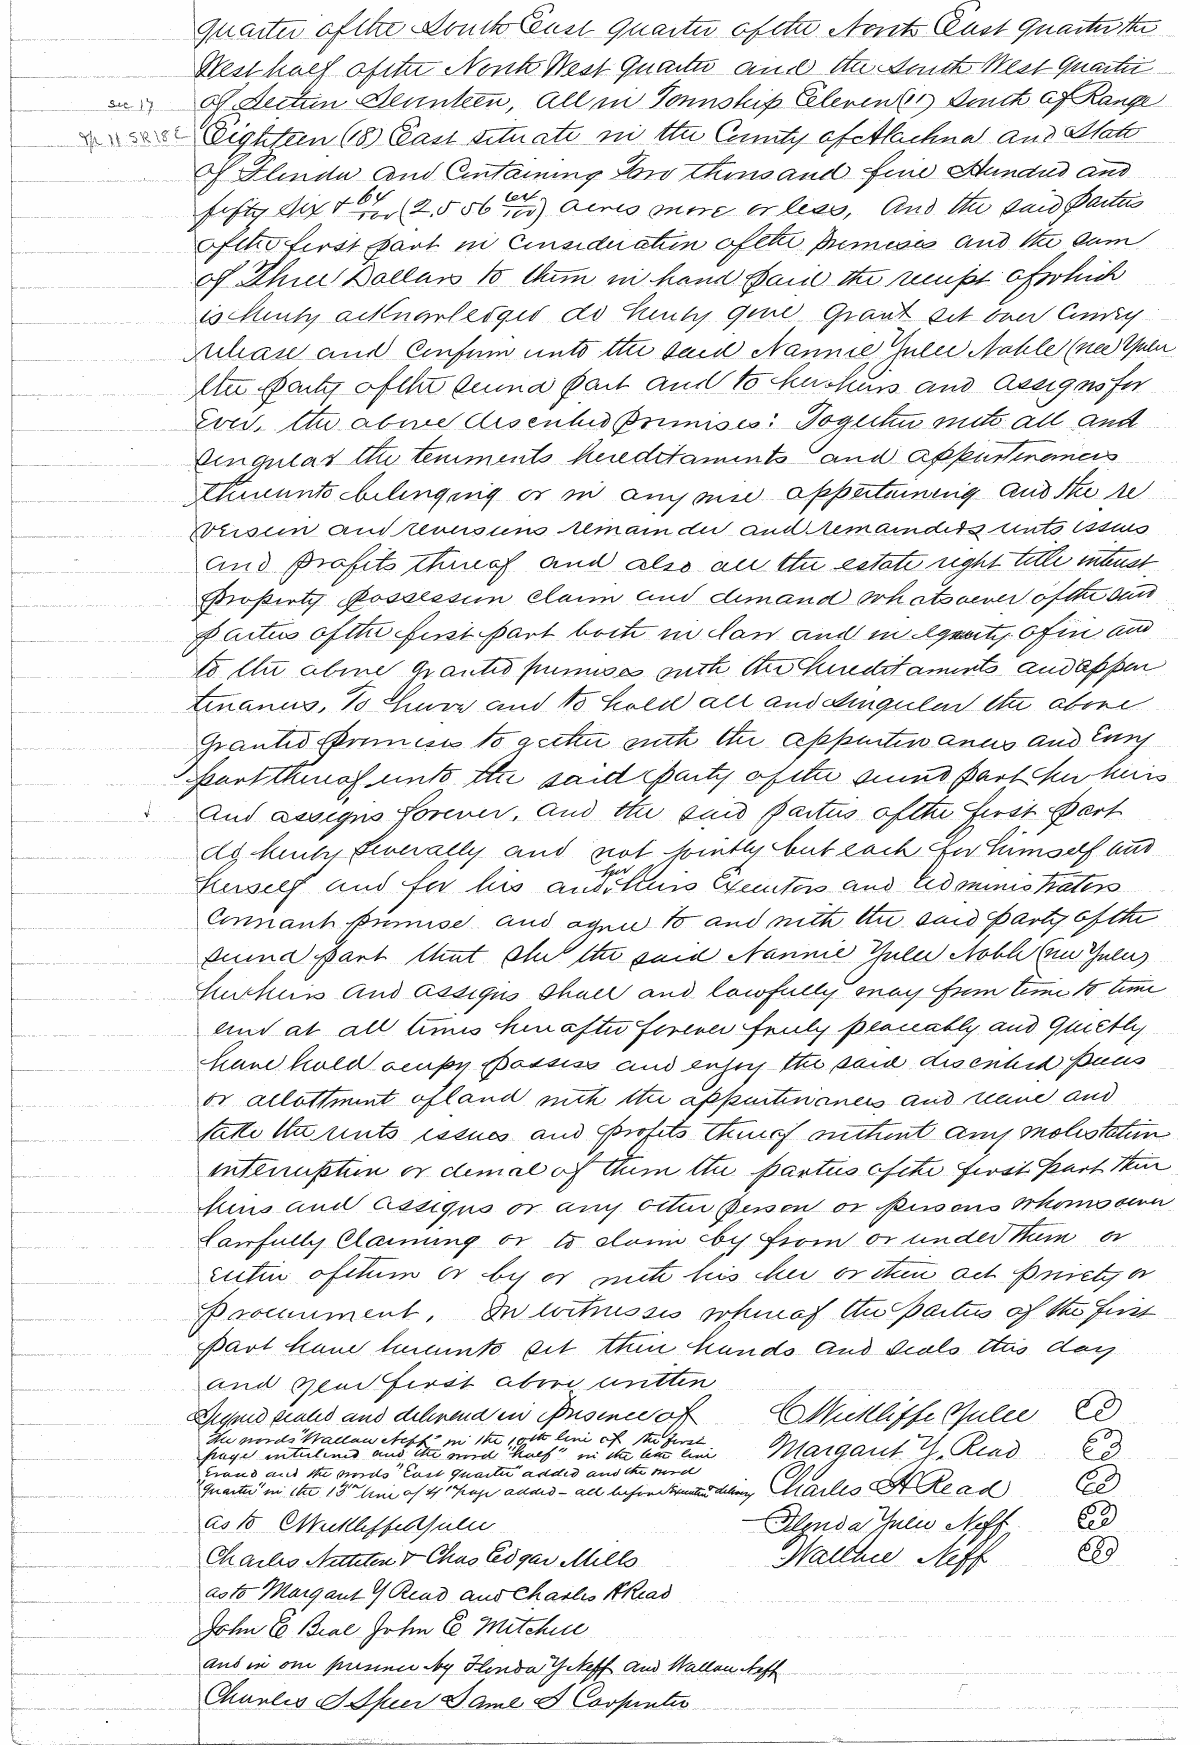 quarter of the South East quarter of the North East quarter the
West half of the North West quarter and the South West quarter
Sec. 17
of Section Seventeen, all in Township Eleven (11) South of Range
Tp 11 S R 18 E
Eighteen (18) East situate in the County of Alachua and State
of Florida and Containing Two thousand five Hundred and
fifty six & 64/100 (2,556 64/100) acres more or less, And the said parties
of the first part in consideration of the premises and the sum
of Three Dollars to them in hand paid the receipt of which
is hereby acknowledged do hereby give Grant set over Convey
release and Confirm unto the said Nannie Yulee Noble (nee Yulee
the party of the second part and to her heirs and assigns for
ever, the above described premises: Together with all and
singular the tenements hereditaments and appurtenances
thereunto belonging or in any wise appertaining and the re
version and reversions remainder and remainders rents issues
and profits thereof and also all the estate right title interest
property possession claim and demand whatsoever of the said
parties of the first part both in law and in equity, of in and
to the above granted premises with the hereditaments and appur
tenances, To have and to hold all and singular the above
granted premises together with the appurtenances and Every
part thereof unto the said party of the second part her heirs
and assigns forever, and the said parties of the first part
do hereby severally and not jointly but each for himself and
herself and for his and her heirs Executors and administrators
Covenant promise and agree to and with the said party of the
second part that she the said Nannie Yulee Noble (nee Yulee)
her heirs and assigns shall and lawfully may from time to time
and at all times hereafter forever freely peaceably and quietly
have hold occupy possess and enjoy the said described pieces
or allottment of land with the appurtenances and receive and
take the rents issues and profits thereof without any molestation
interruption or denial of them the parties of the first part their
heirs and assigns or any other person or persons whomsoever
lawfully Claiming or to claim by from or under them or
either of them or by or with his her or their act privity or
procurement. In witnesses whereof the parties of the first
part have hereunto set their hands and seals this day
and year first above written
Signed sealed and delivered in presence of C Wickliffe Yulee
the words "Wallace Neff" in the 10th line of the first
page interlined and the word "half" in the line Margaret Y. Read
Erased and the words "East quarter" added and the word
"Quarter" in the 13th line of 4th page added - all before Execution & delivery Charles H Read
as to C Wickliffe Yulee Florida Yulee Neff
Charles Nettleton & Chas Edgar Mills Wallace Neff
as to Margaret Y Read and Charles H Read
John E Beal John E Mitchell
and in our presence by Florida Y Neff and Wallace Neff
Charles S Speer Jame S Carpenter